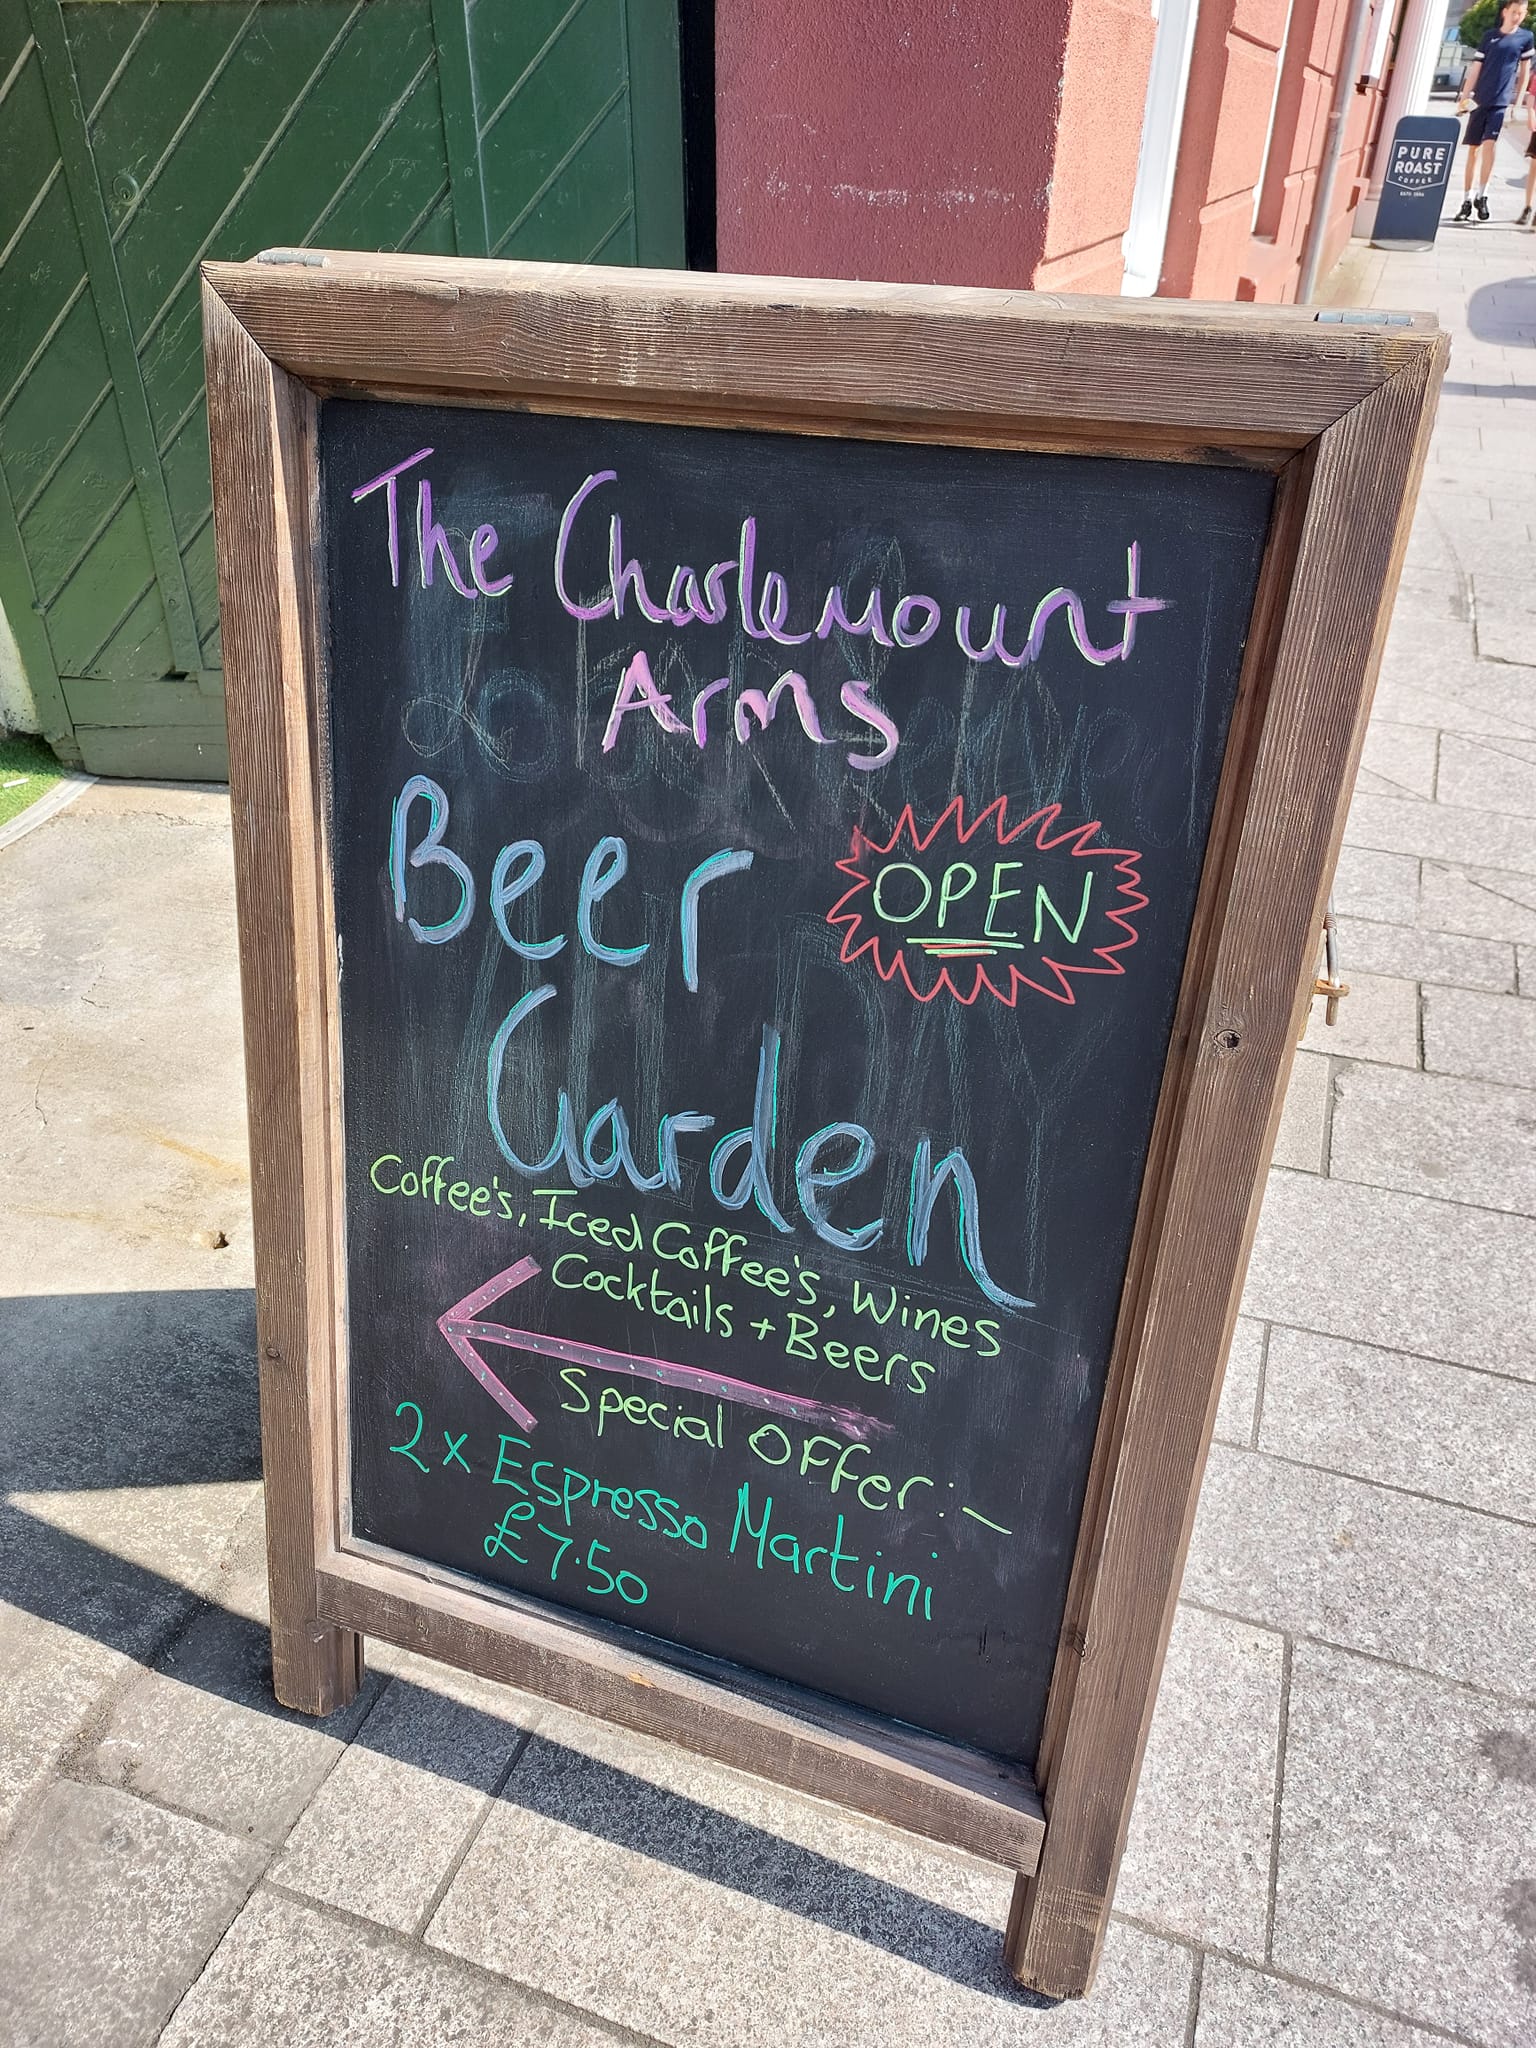 The Charlemount
Arms
Beer
OPEN
Garden
Coffee's, Iced Coffee's, Wines
Cocktails + Beers
Special OFFer:-
2 x Espresso Martini
£7.50
PURE
ROAST
COFFEE